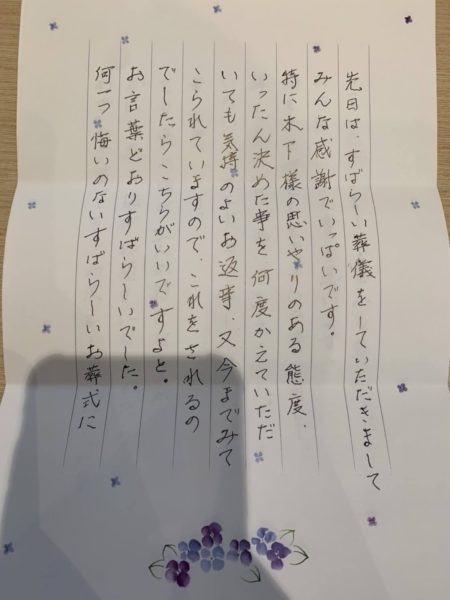 先日は、すばらしい葬儀をしていただきまして
みんな感謝でいっぱいです。
特に木下様の思いやりのある態度、
いったん決めた事を何度かえていただ
いても気持のよいお返事、又今までみて
こられていますので、これをされるの
でしたらこちらがいいですよと。
お言葉どおりすばらしいでした。
何一つ悔いのないすばらしいお葬式に